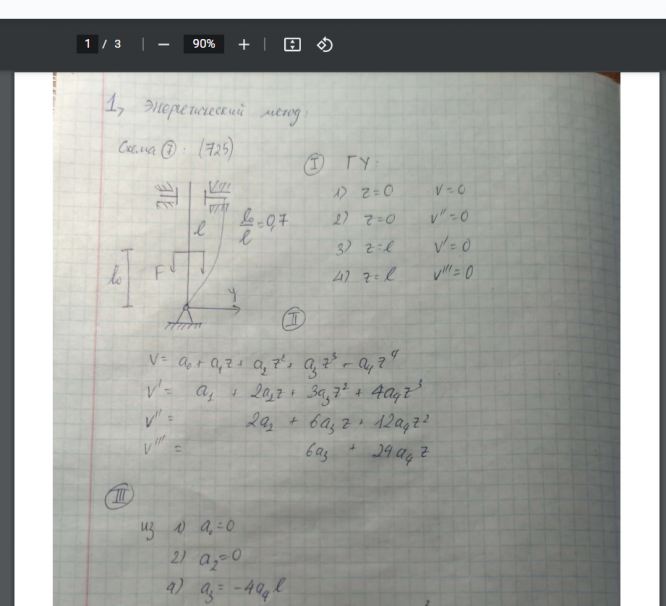 1 / 3 | − 90% + |
1, Энергетический метод:
Схема ⑦: (725)
Ⅰ ГУ:
1) z=0 v=0
2) z=0 v''=0
3) z=l v'=0
4) z=l v'''=0
l
l₀/l = 0,7
l₀
F
y
Ⅱ
v = a₀ + a₁z + a₂z² + a₃z³ + a₄z⁴
v' = a₁ + 2a₂z + 3a₃z² + 4a₄z³
v'' = 2a₂ + 6a₃z + 12a₄z²
v''' = 6a₃ + 24a₄z
Ⅲ
из 1) a₀=0
2) a₂=0
4) a₃ = -4a₄l